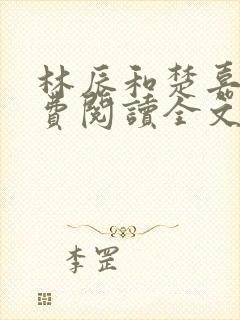 林辰和楚嘉
費閱讀全文
李罡